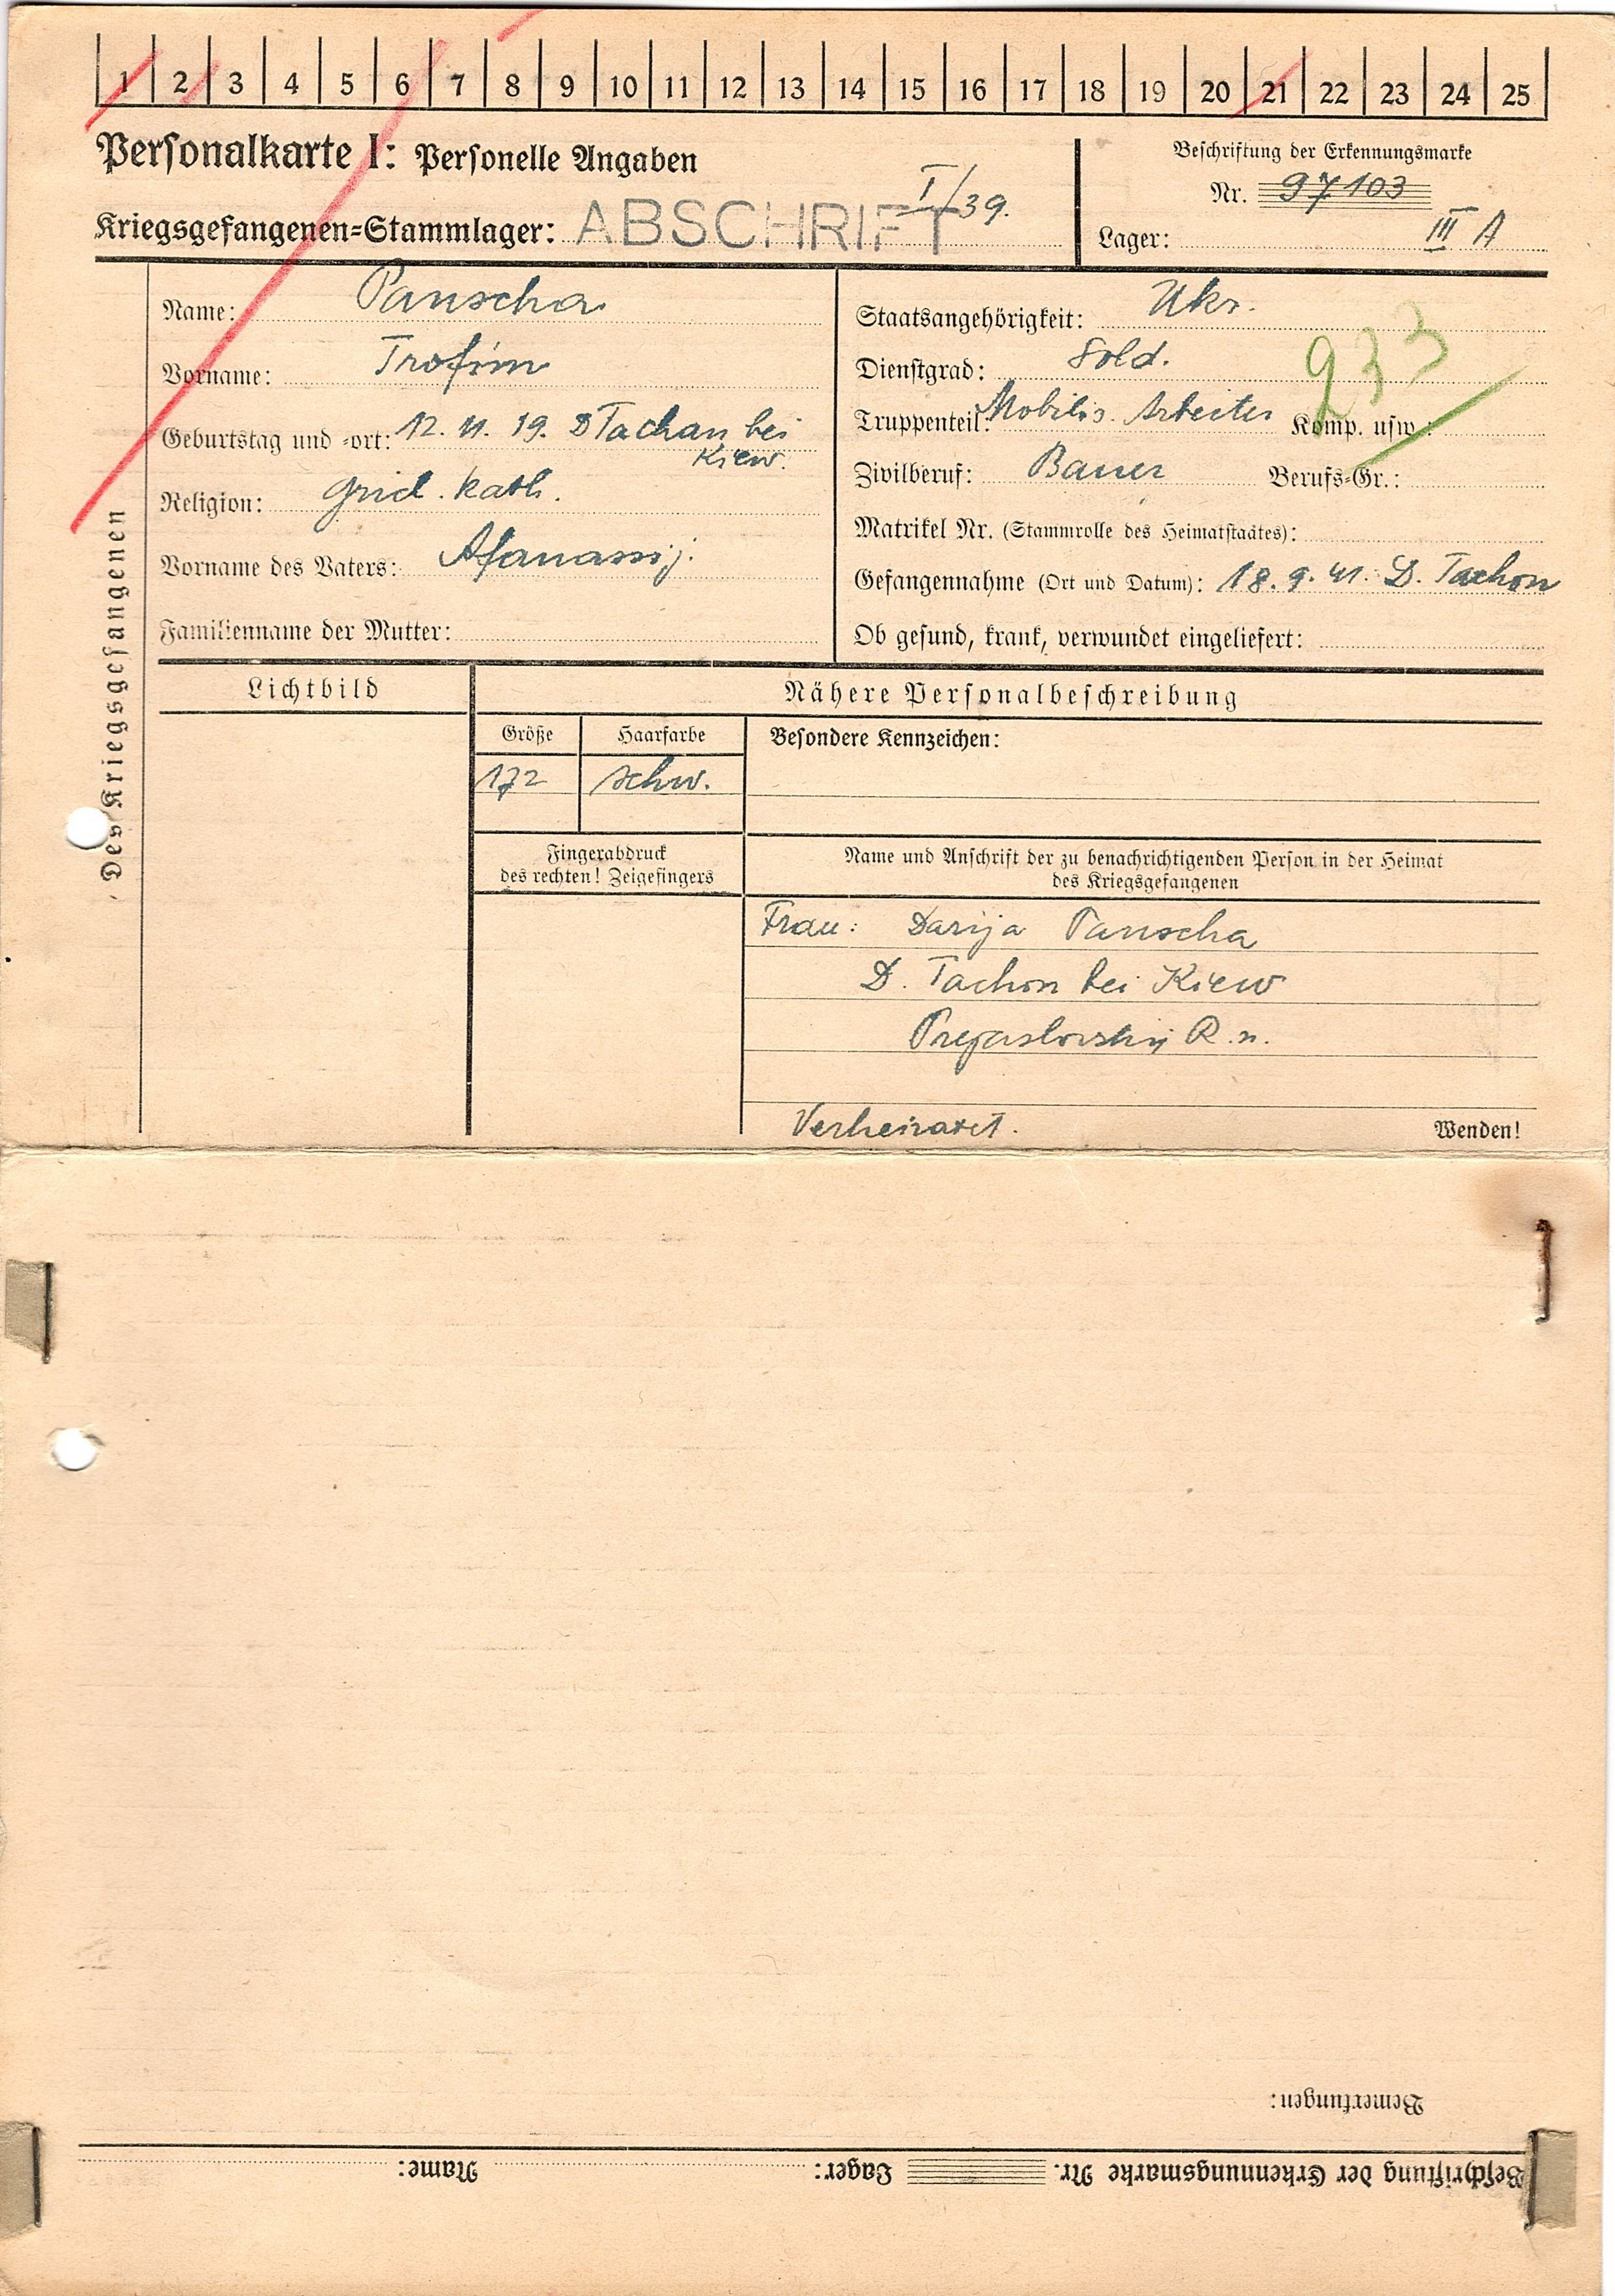 1 2 3 4 5 6 7 8 9 10 11 12 13 14 15 16 17 18 19 20 21 22 23 24 25
Personalkarte I: Personelle Angaben
Beschriftung der Erkennungsmarke
Nr. 97103
Kriegsgefangenen=Stammlager: ABSCHRIFT I/39.
Lager: III A
Des Kriegsgefangenen
Name: Panscha
Vorname: Trofim
Geburtstag und -ort: 12. 11. 19. D Tachan bei
Kiew.
Religion: Kath.
Vorname des Vaters: Afanassij.
Familienname der Mutter:
Staatsangehörigkeit: Ukr.
Dienstgrad: Sold.
933
Truppenteil: Mobilis. Arbeiter Komp. usw.:
Zivilberuf: Bauer Berufs=Gr.:
Matrikel Nr. (Stammrolle des Heimatstaates):
Gefangennahme (Ort und Datum): 18. 9. 41. D. Tachon
Ob gesund, krank, verwundet eingeliefert:
Lichtbild
Nähere Personalbeschreibung
Größe
Haarfarbe
Besondere Kennzeichen:
172
schw.
Fingerabdruck
des rechten! Zeigefingers
Name und Anschrift der zu benachrichtigenden Person in der Heimat
des Kriegsgefangenen
Frau: Darija Panscha
D. Tachon bei Kiew
R.n.
Verheiratet.
Wenden!
Bemerkungen:
Beschriftung der Erkennungsmarke Nr. Lager: Name: